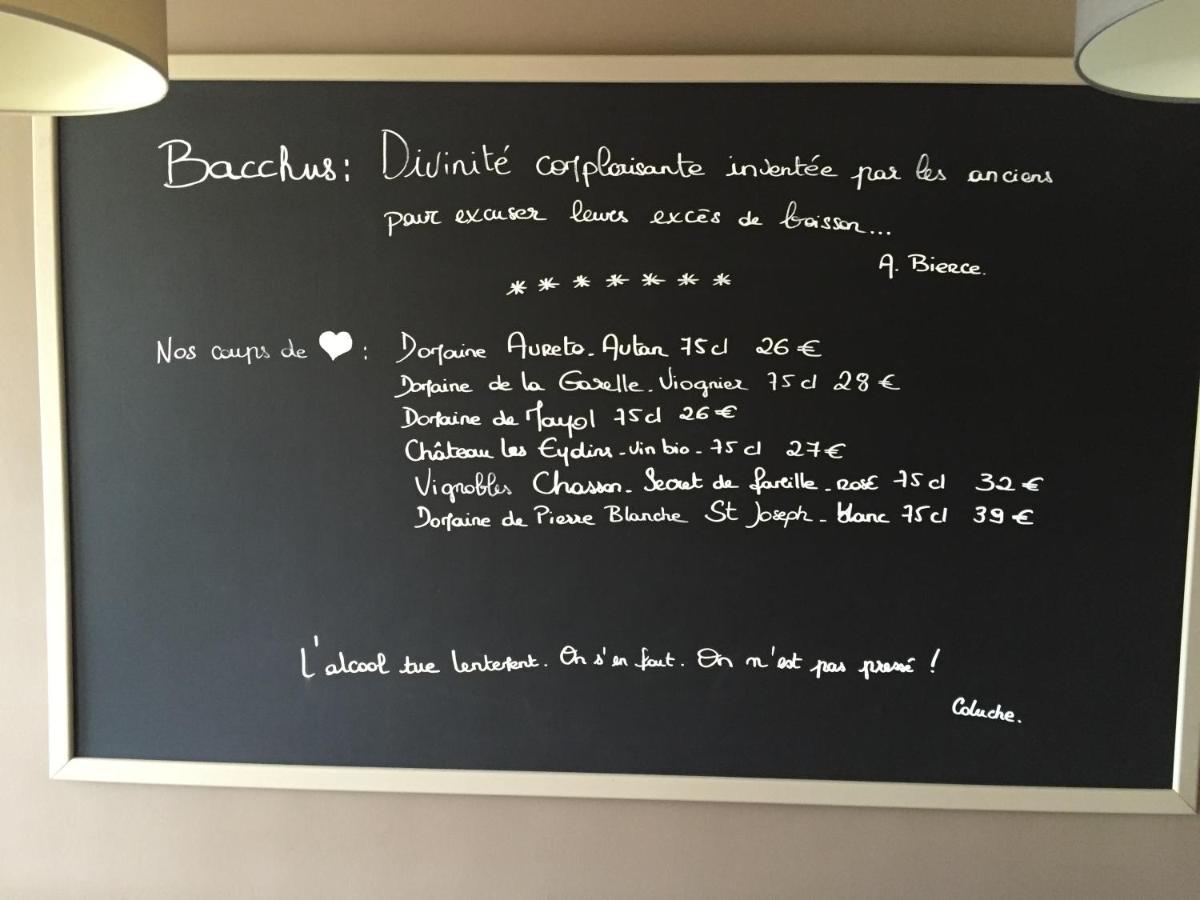 Bacchus: Divinité complaisante inventée par les anciens
pour excuser leurs excès de boisson...
A. Bierce.
* * * * * * *
Nos coups de ♥ : Domaine Aureto - Autan 75cl 26 €
Domaine de la Garelle - Viognier 75 cl 28 €
Domaine de Mayol 75cl 26 €
Château les Eydins - vin bio - 75 cl 27 €
Vignobles Chasson - Secret de famille - rosé 75 cl 32 €
Domaine de Pierre Blanche St Joseph - blanc 75cl 39 €
L'alcool tue lentement. On s'en fout. On n'est pas pressé !
Coluche.